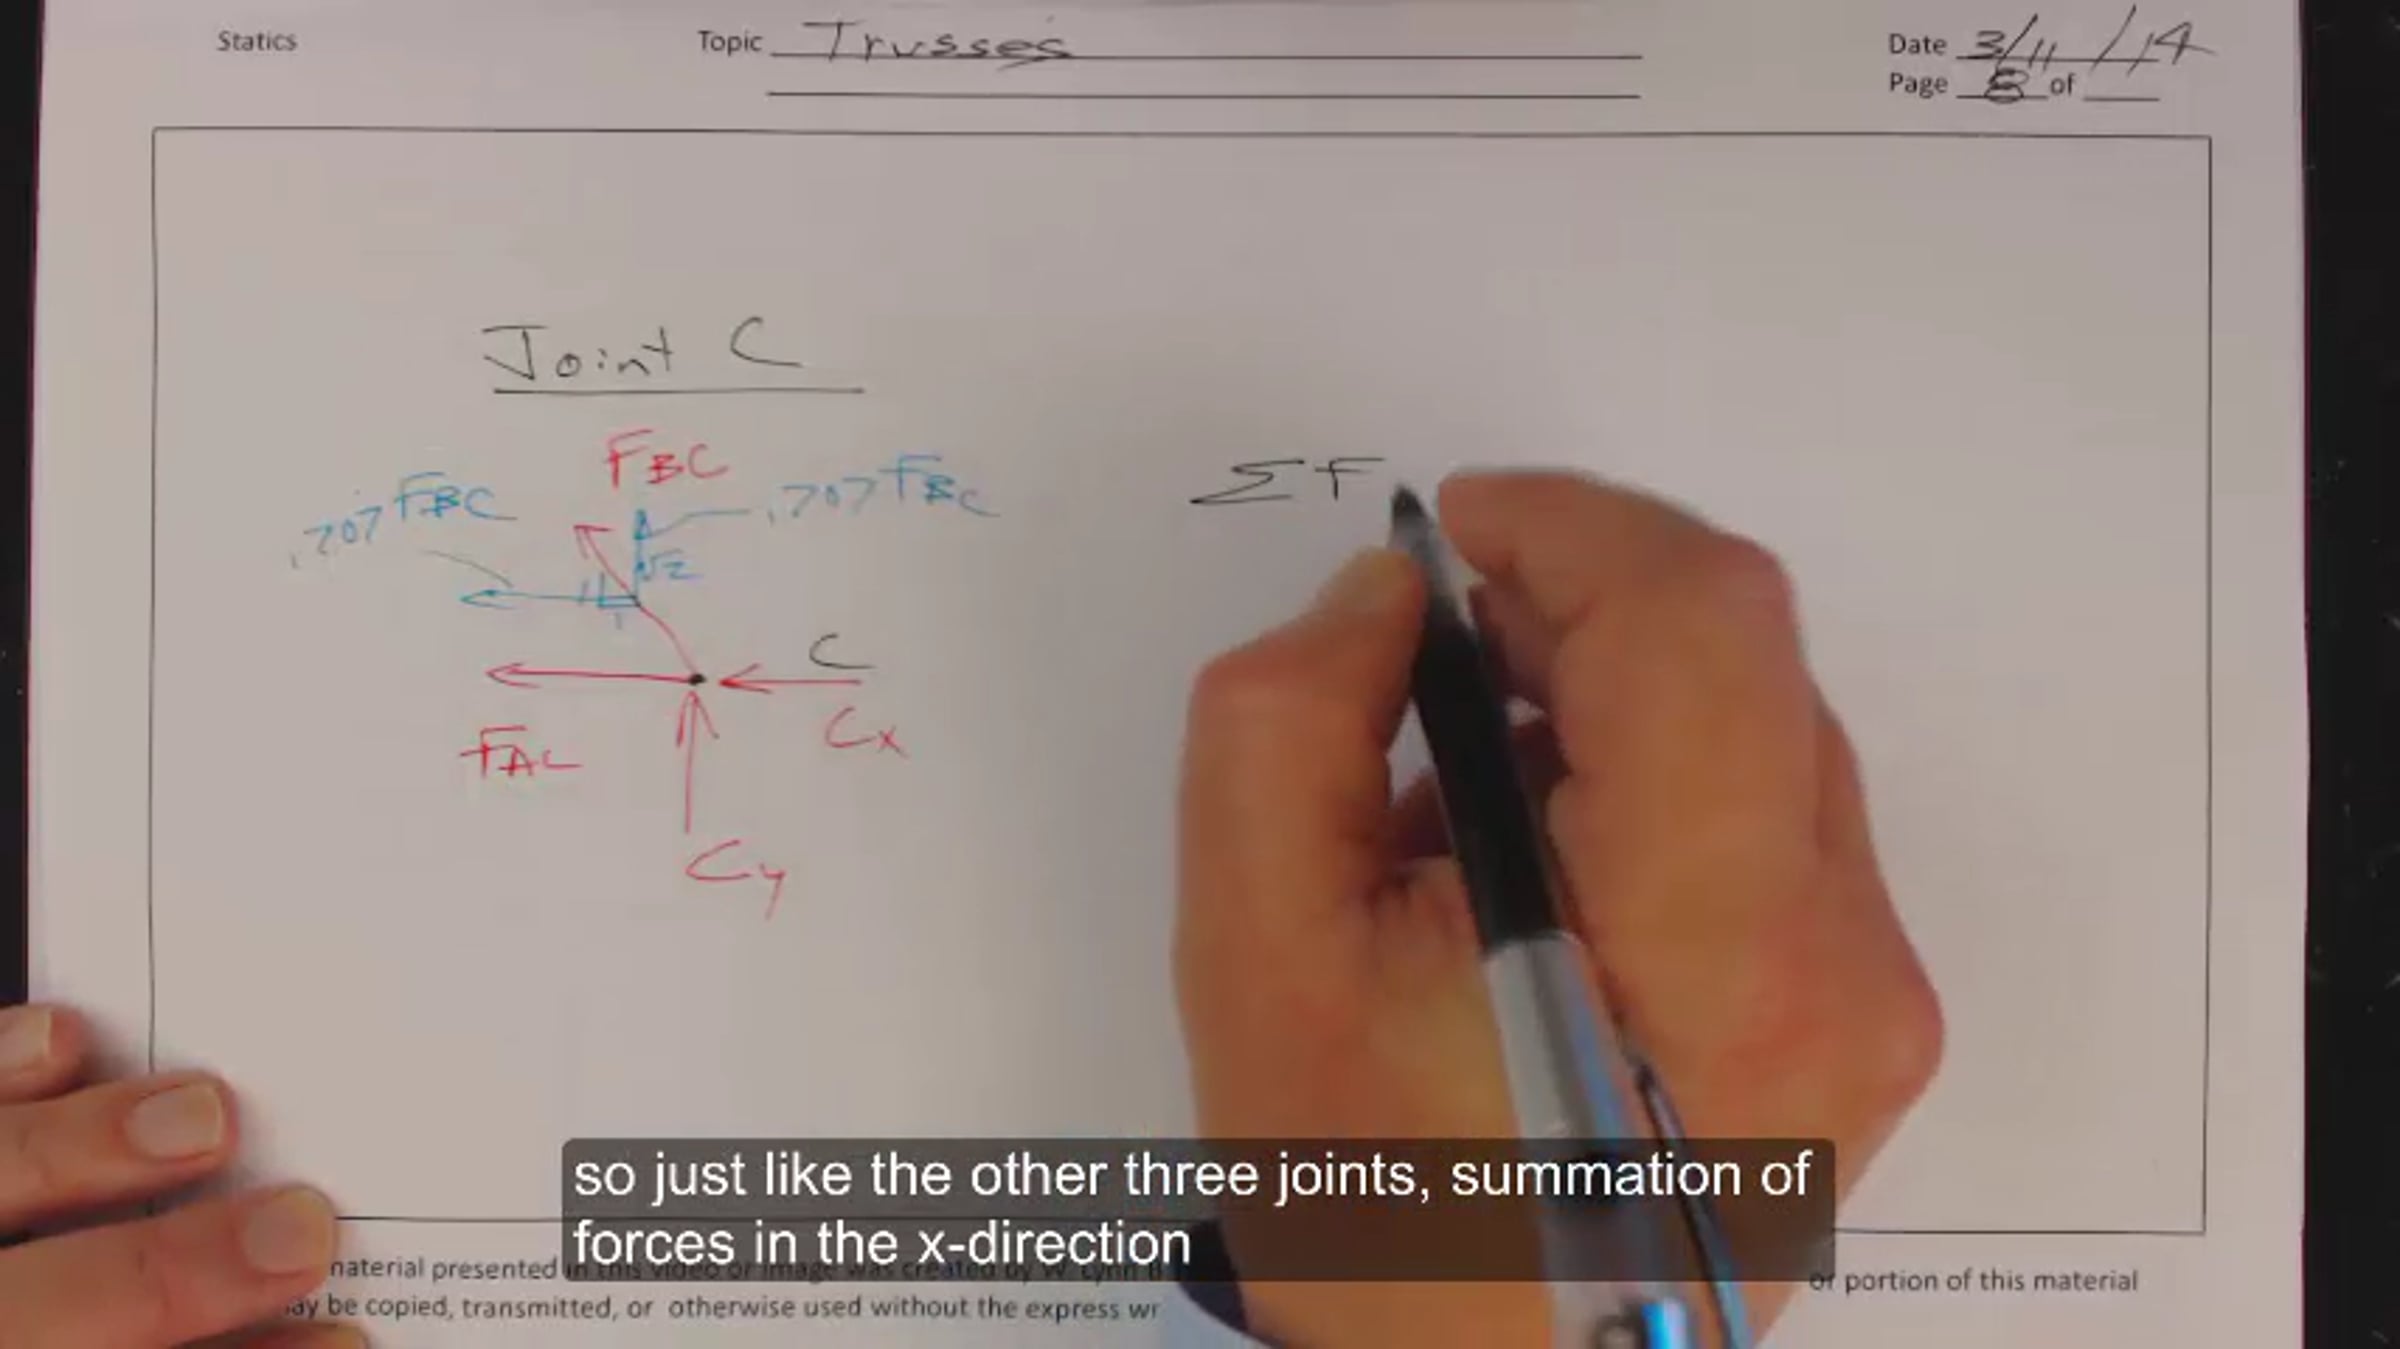 Statics
Topic Trusses
Date 3/11/14
Page 8 of
Joint C
FBC
.707 FBC
.707 FBC
√2
1
C
Cx
FAC
Cy
ΣF
so just like the other three joints, summation of
forces in the x-direction
material presented in this video or image was created by W. Lynn
or portion of this material
may be copied, transmitted, or otherwise used without the express